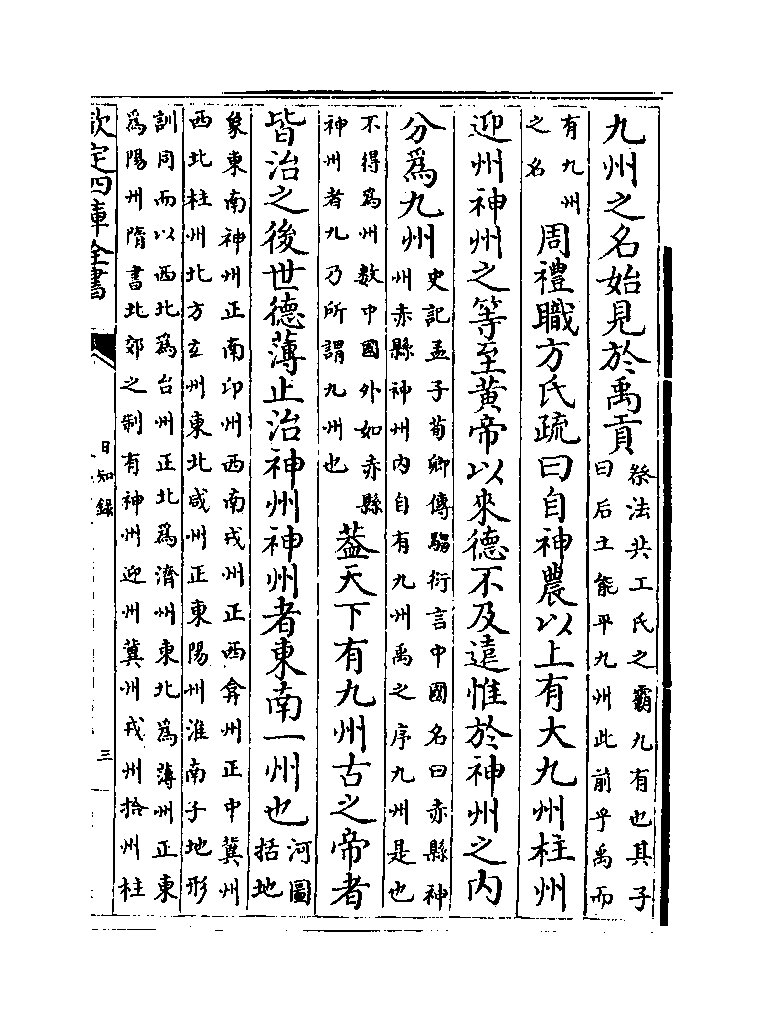 九州之名始見於禹貢祭法共工氏之霸九有也其子
曰后土能平九州此前乎禹而
有九州
之名
周禮職方氏疏曰自神農以上有大九州柱州
迎州神州之等至黃帝以來德不及遠惟於神州之内
分爲九州史記孟子荀卿傳騶衍言中國名曰赤縣神
州赤縣神州内自有九州禹之序九州是也
不得爲州數中國外如赤縣
神州者九乃所謂九州也
葢天下有九州古之帝者
皆治之後世德薄止治神州神州者東南一州也河圖
括地
象東南神州正南印州西南戎州正西弇州正中冀州
西北柱州北方玄州東北咸州正東陽州淮南子地形
訓同而以西北爲台州正北爲濟州東北爲薄州正東
爲陽州隋書北郊之制有神州迎州冀州戎州拾州柱
欽定四庫全書
日知録
三